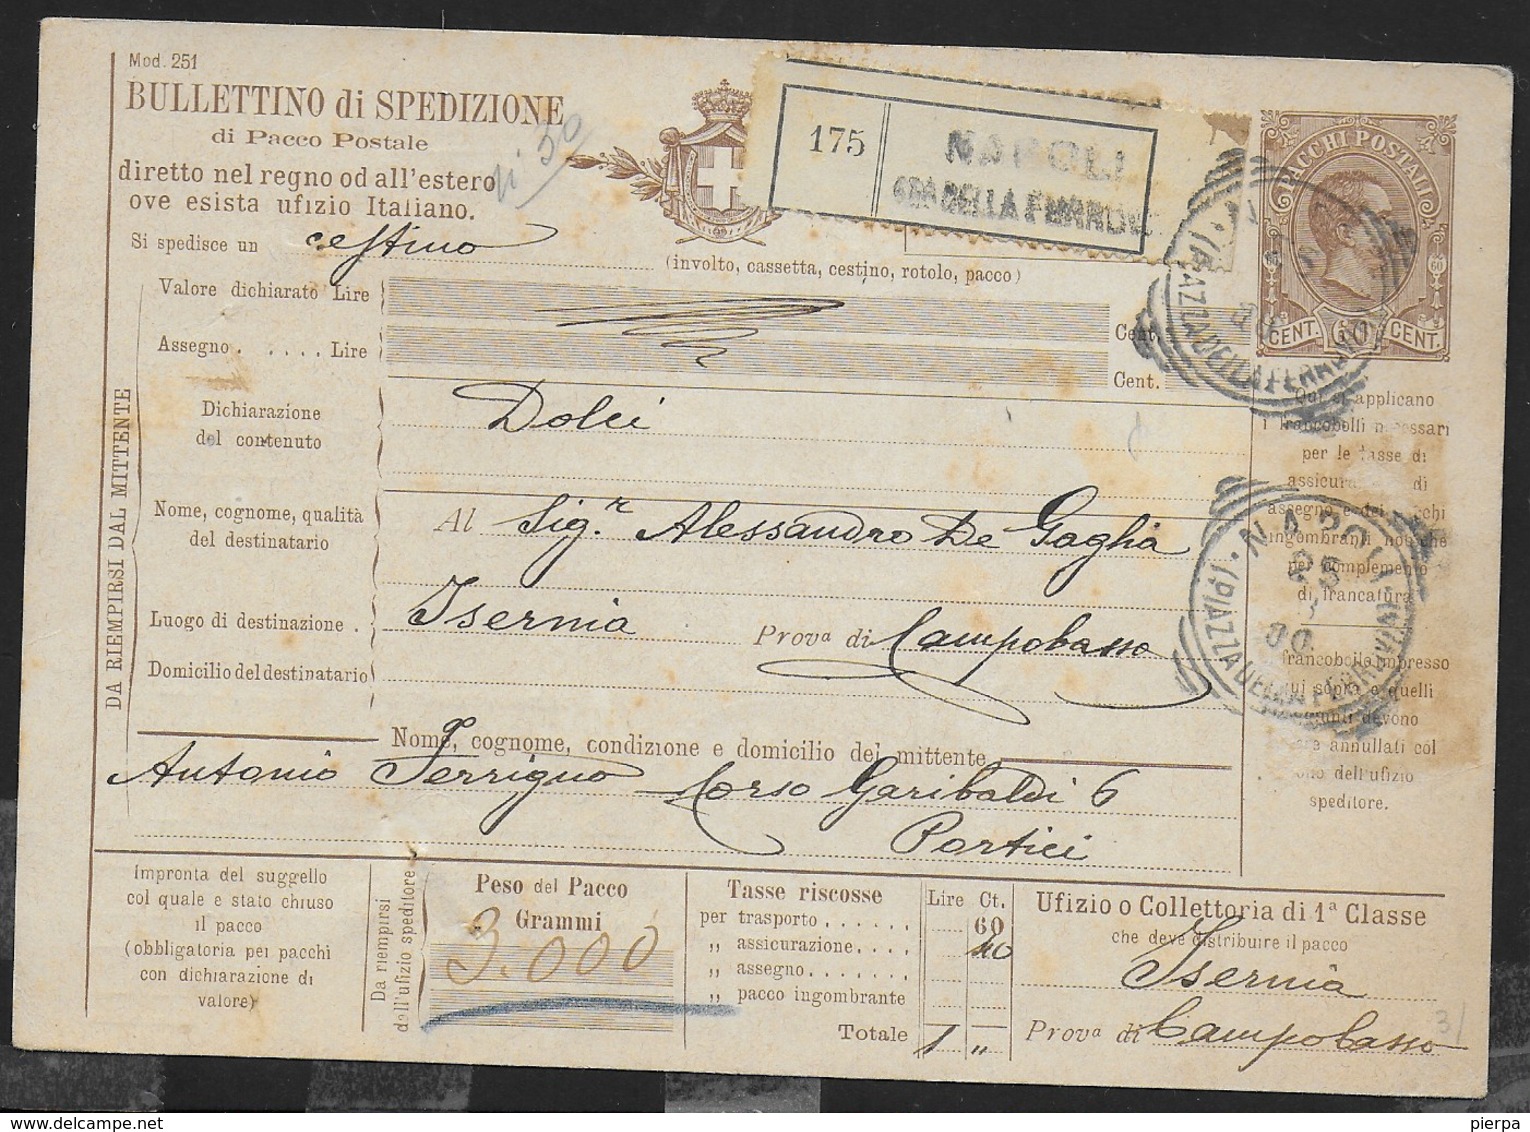 delcampe.net
Mod. 251
BULLETTINO di SPEDIZIONE
di Pacco Postale
diretto nel regno od all'estero
ove esista ufizio Italiano.
Si spedisce un cestino
(involto, cassetta, cestino, rotolo, pacco)
175
NAPOLI
PACCHI POSTALI
60
CENT. 60 CENT.
Valore dichiarato Lire
Cent.
Assegno . . . . . Lire
Cent.
Dichiarazione
del contenuto
Dolci
DA RIEMPIRSI DAL MITTENTE
Nome, cognome, qualità
del destinatario
Al Sig.r Alessandro De Gaglia
Luogo di destinazione .
Isernia Prova di Campobasso
Domicilio del destinatario
Nome, cognome, condizione e domicilio del mittente
Antonio Ferrigno Corso Garibaldi 6
Portici
Qui si applicano
i francobolli necessari
per le tasse di
di
per complemento
di francatura
francobollo impresso
qui sopra e quelli
devono
annullati col
dell'ufizio
speditore.
NAPOLI
25
00
(PIAZZA DELLA FERROVIA)
Impronta del suggello
col quale e stato chiuso
il pacco
(obbligatoria pei pacchi
con dichiarazione di
valore)
Da riempirsi
dell'ufizio speditore
Peso del Pacco
Grammi
3.000
Tasse riscosse
Lire Ct.
per trasporto . . . . . . 60
„ assicurazione. . . . 40
„ assegno . . . . . . .
„ pacco ingombrante
Totale 1 „
Ufizio o Collettoria di 1ª Classe
che deve distribuire il pacco
Isernia
Prova di Campobasso
31
pierpa